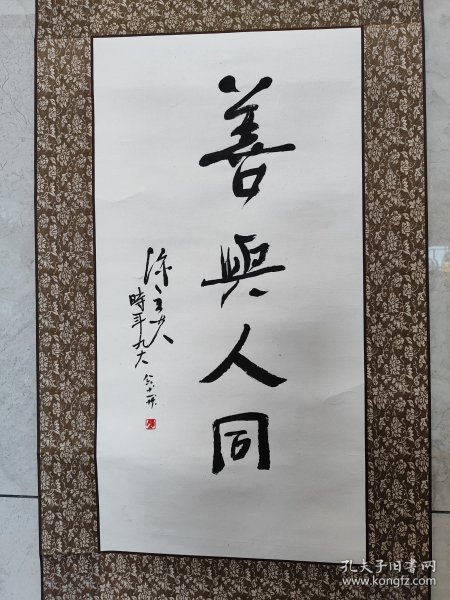 善與人同
陳立夫
時年九六
孔夫子旧书网
www.kongfz.com